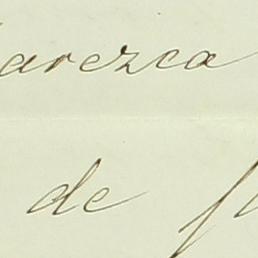 arezca
de